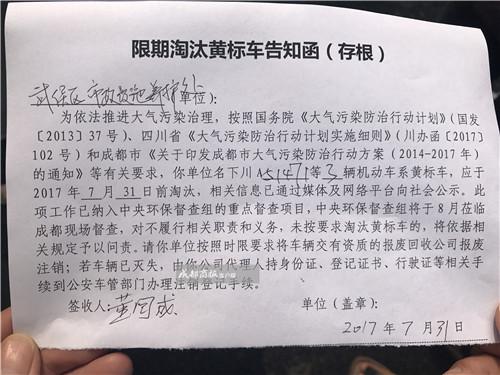 限期淘汰黄标车告知函（存根）
武侯区市政设施养护处（单位）：
为依法推进大气污染治理，按照国务院《大气污染防治行动计划》（国发
〔2013〕37号）、四川省《大气污染防治行动计划实施细则》（川办函〔2017〕
102号）和成都市《关于印发成都市大气污染防治行动方案（2014-2017年）
的通知》等有关要求，你单位名下川A51471等3辆机动车系黄标车，应于
2017年7月31日前淘汰，相关信息已通过媒体及网络平台向社会公示。此
项工作已纳入中央环保督查组的重点督查项目，中央环保督查组将于8月莅临
成都现场督查，对不履行相关职责和义务，未按要求淘汰黄标车的，将依据相
关规定予以问责。请你单位按照时限要求将车辆交有资质的报废回收公司报废
注销；若车辆已灭失，由你公司代理人持身份证、登记证书、行驶证等相关手
续到公安车管部门办理注销登记手续。
成都商报
签收人：董国成 单位（盖章）：
2017年7月31日